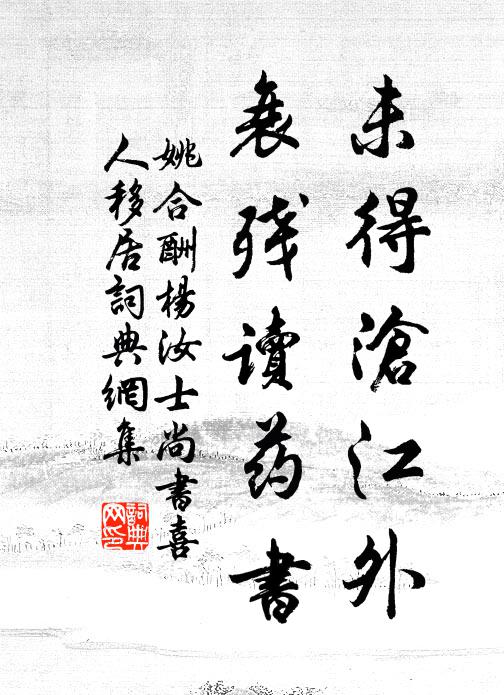 未得滄江外
衰残讀药書
姚合酬楊汝士尚書喜
人移居詞典網集
詞典
网印